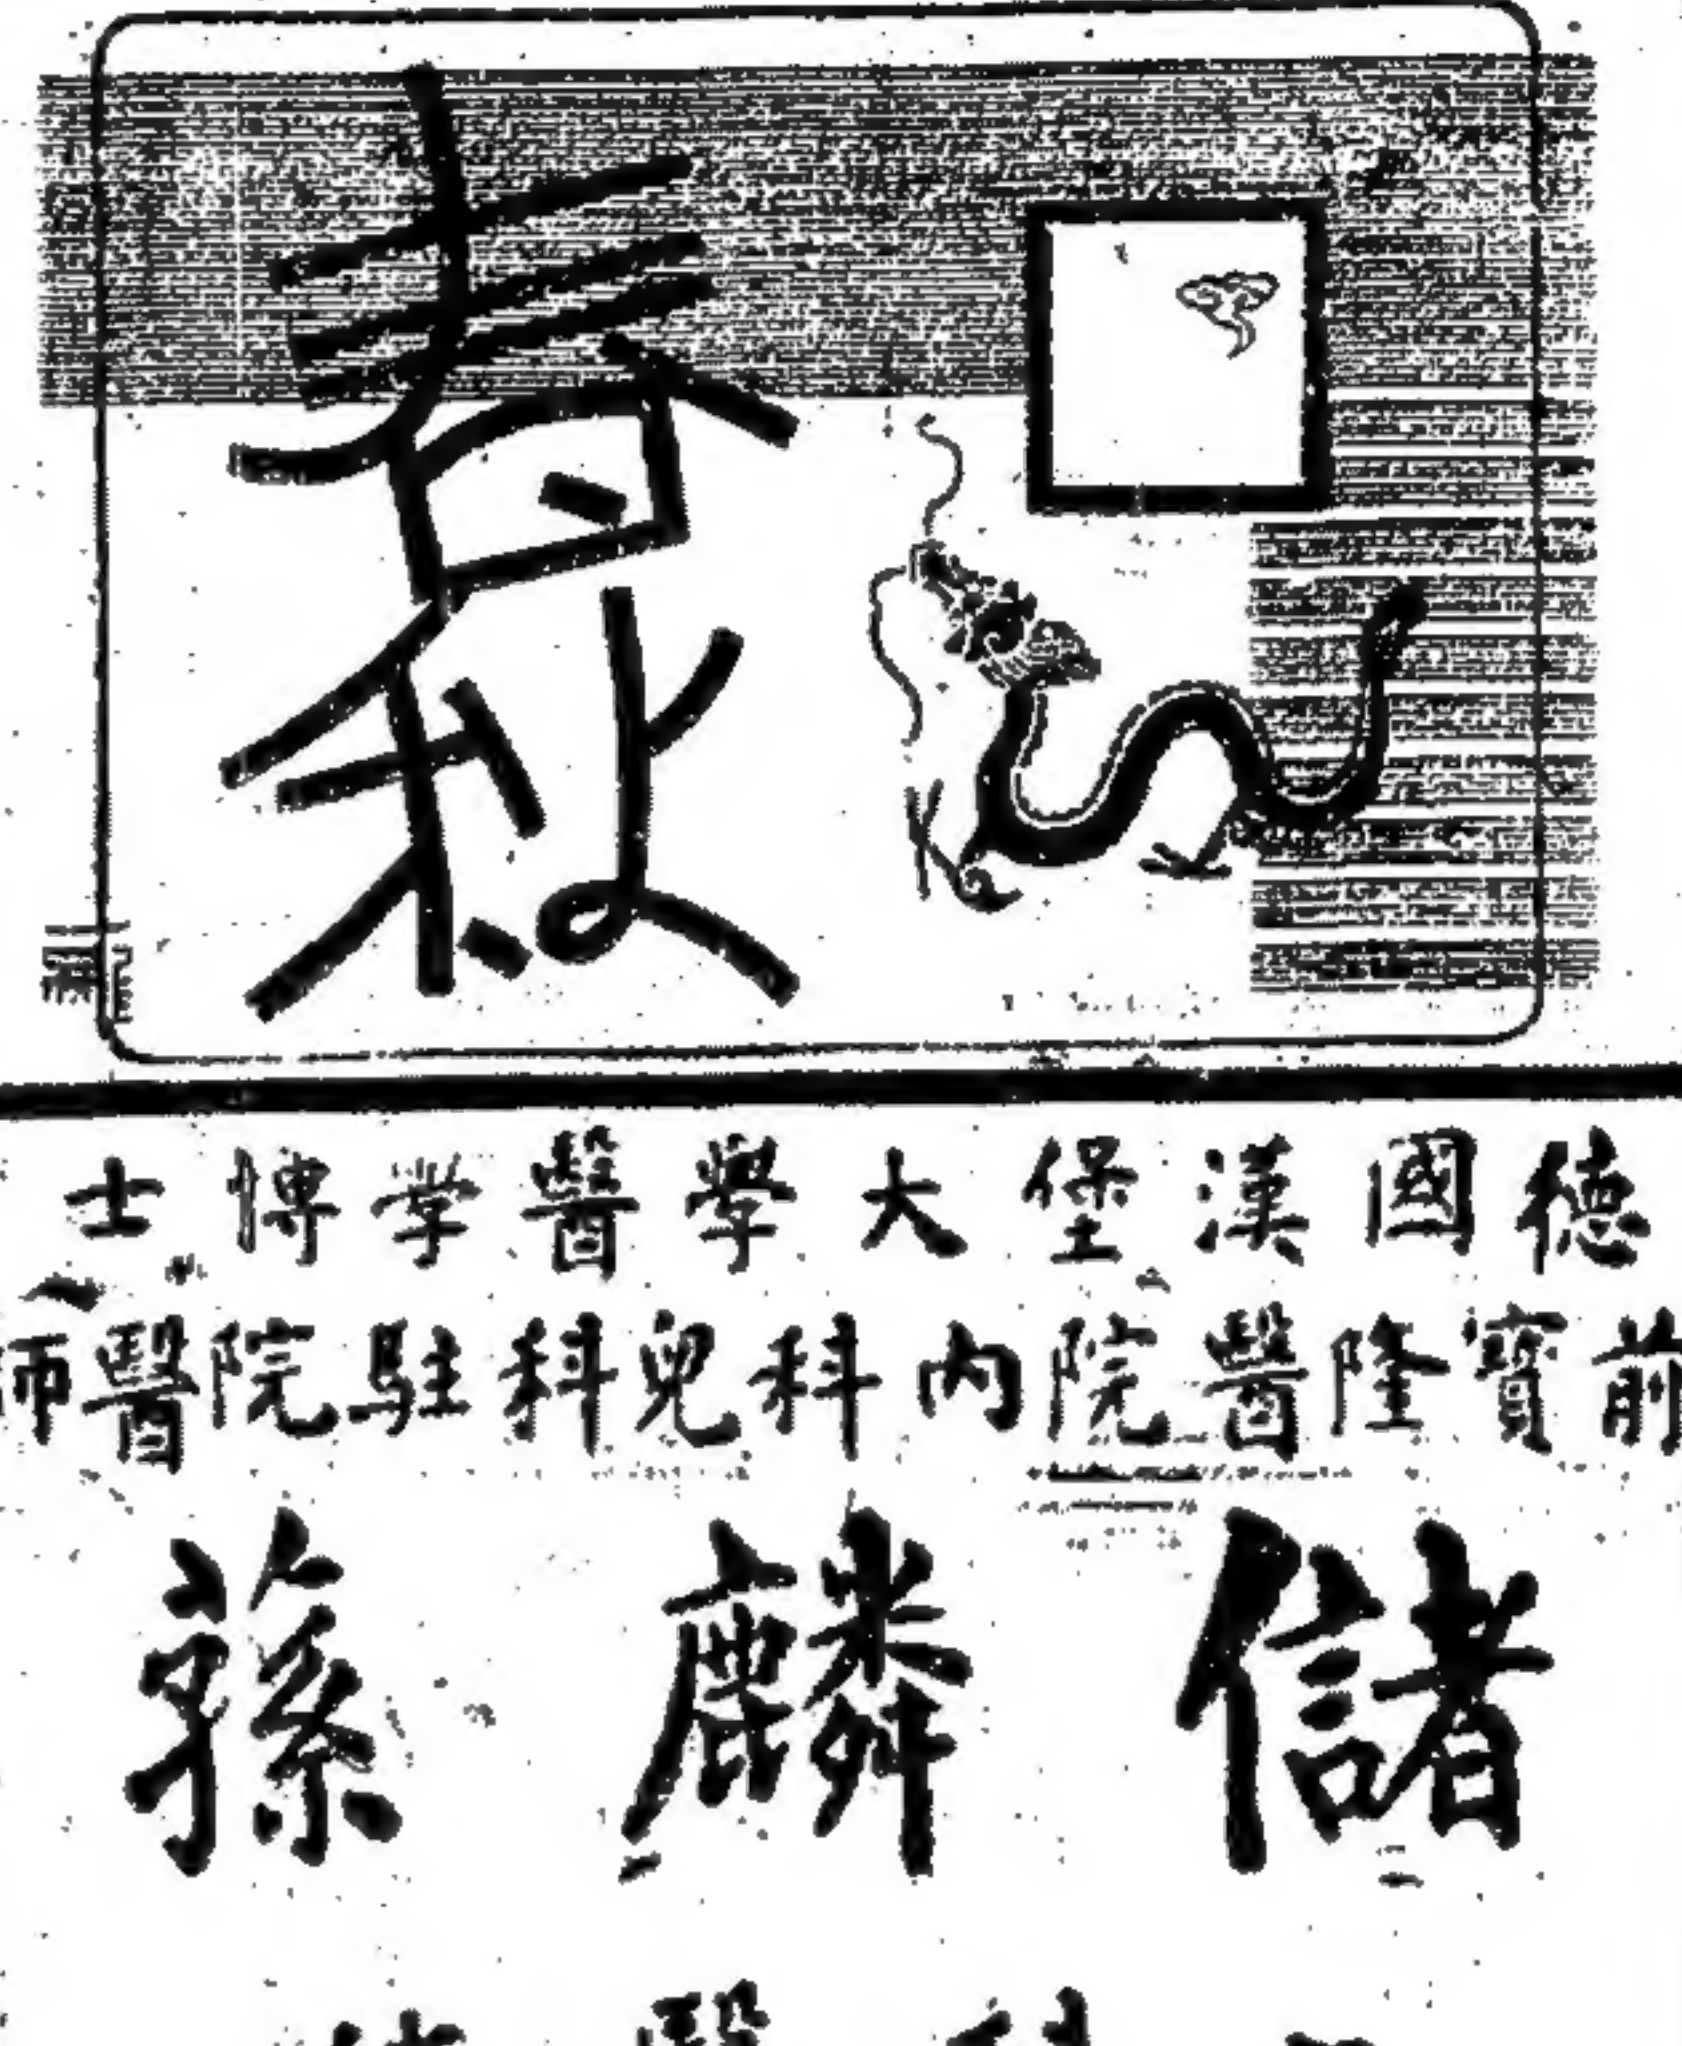 春秋
德國漢堡大學醫学博士
前寶隆醫院內科兒科駐院醫師
儲麟蓀